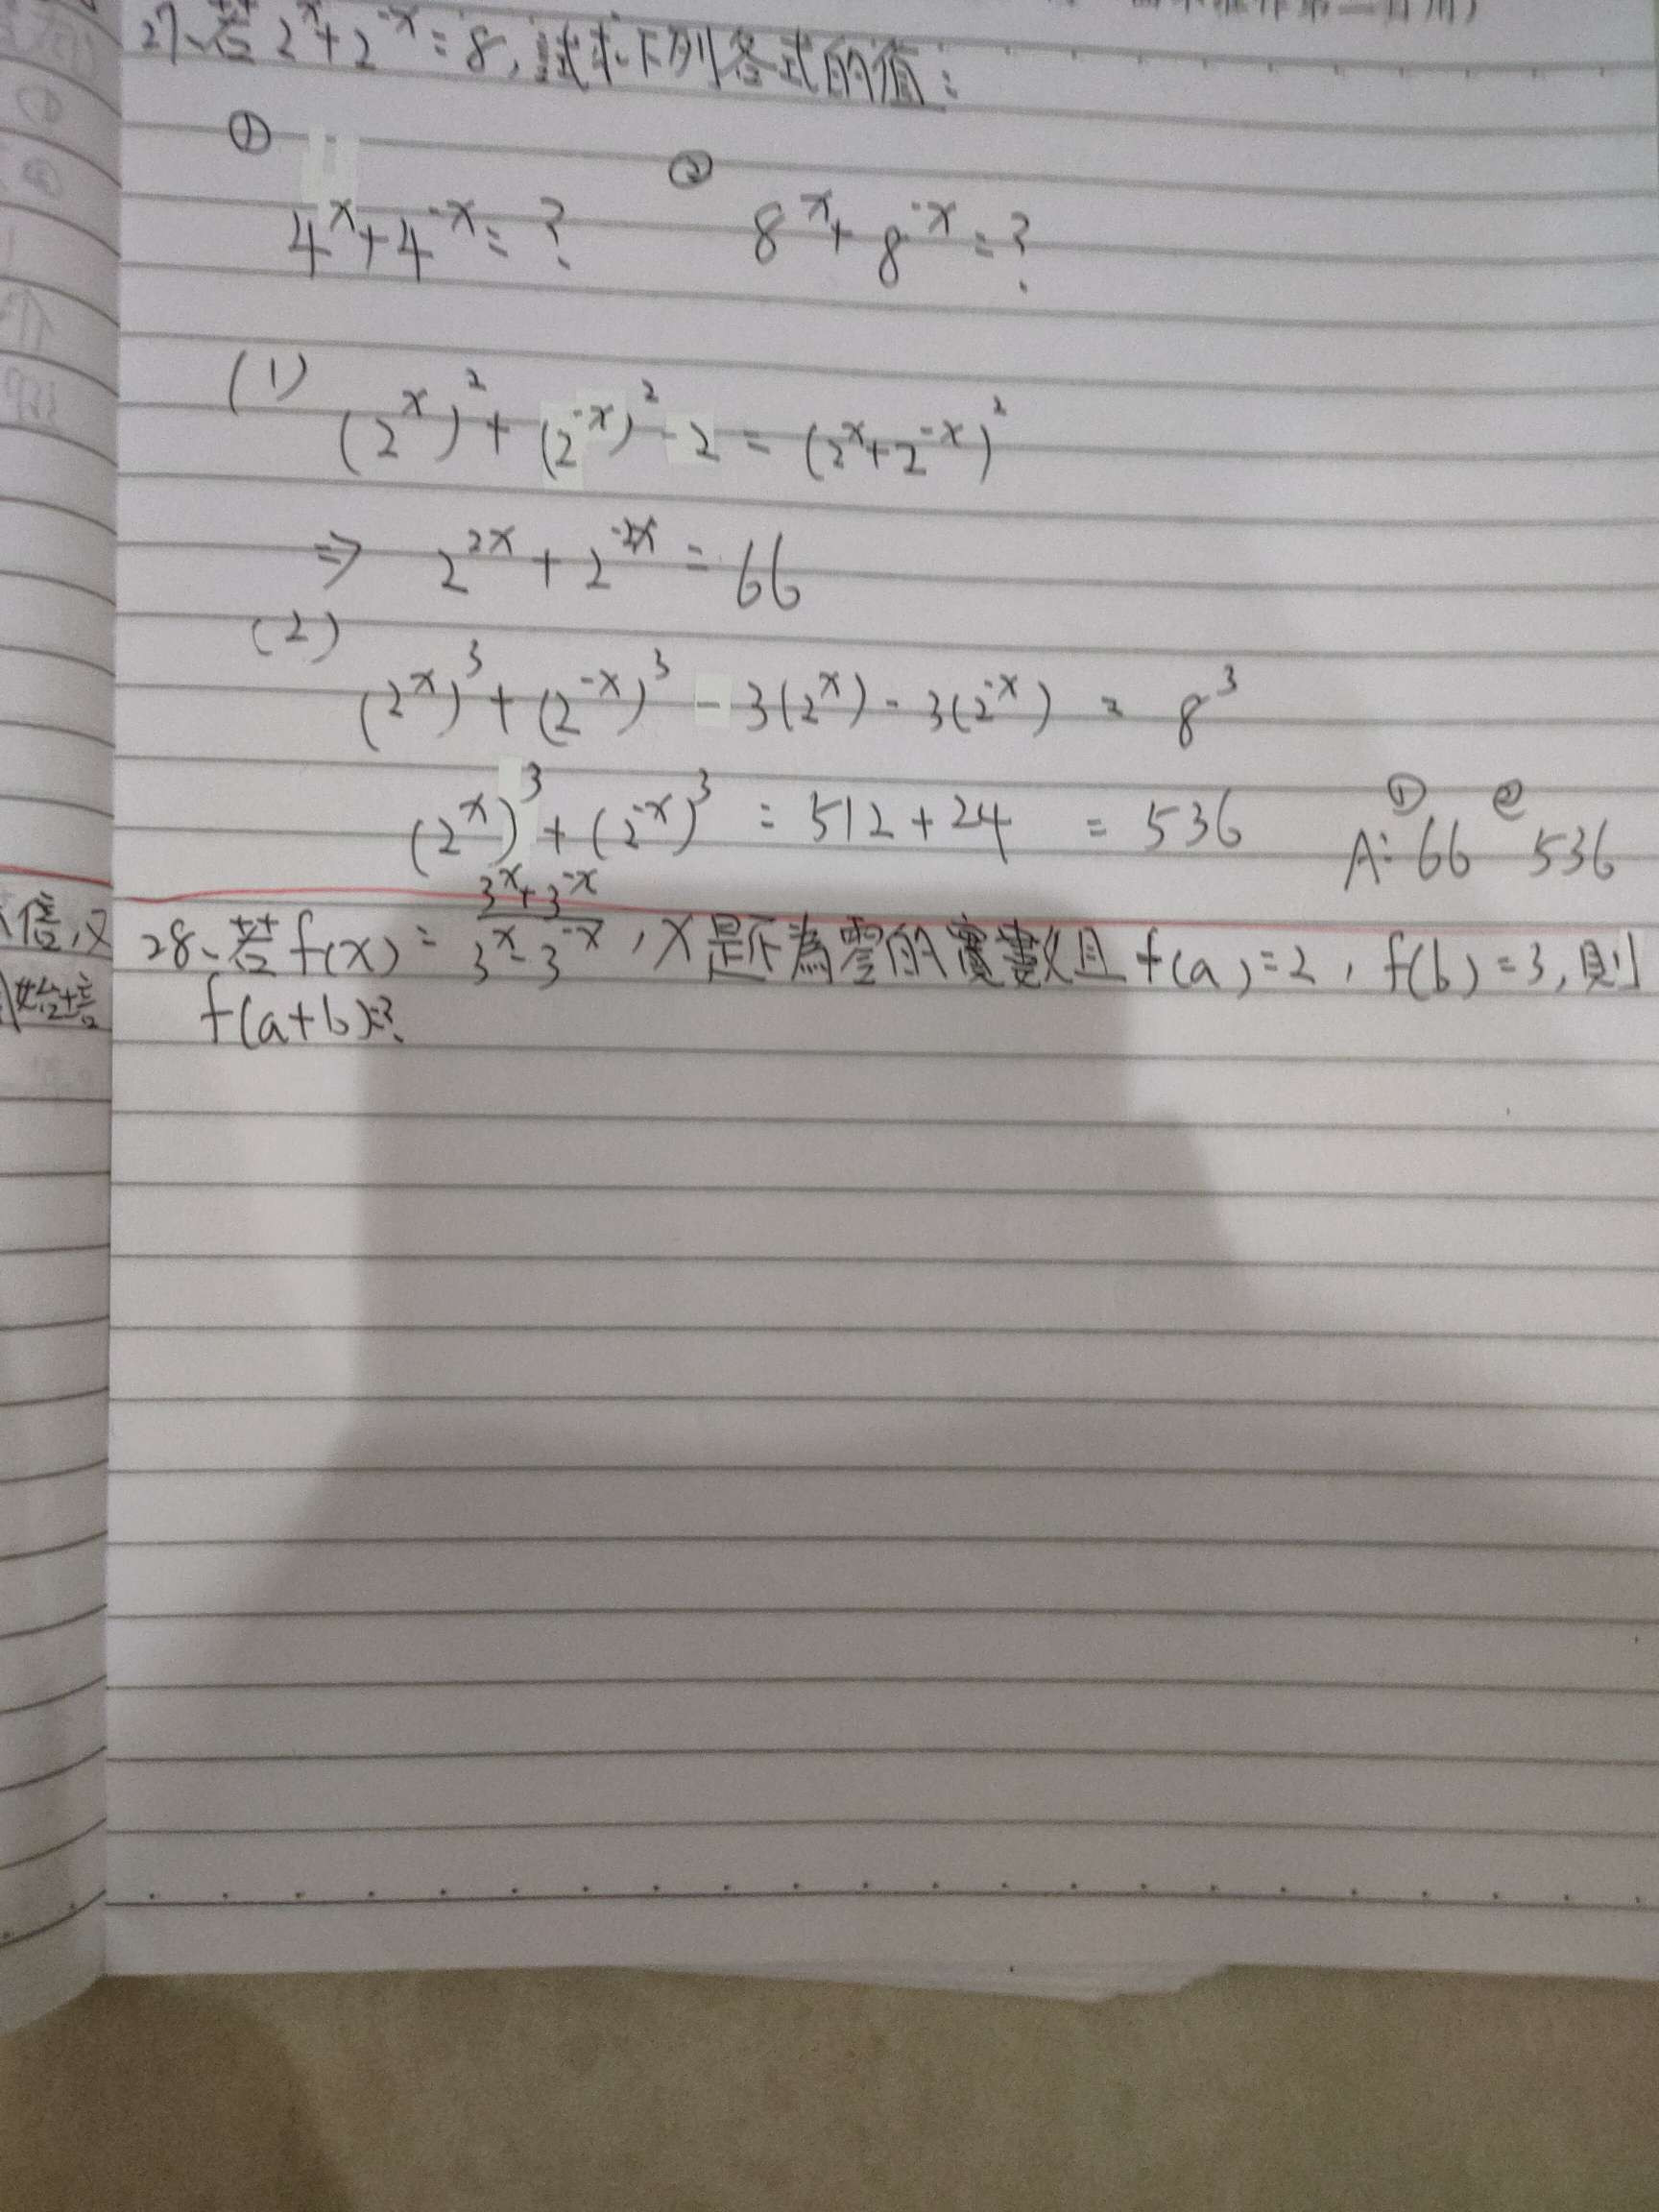 27、若 2^x + 2^-x = 8, 試求下列各式的值:
① ②
4^x + 4^-x = ? 8^x + 8^-x = ?
(1) (2^x)^2 + (2^-x)^2 - 2 = (2^x + 2^-x)^2
⇒ 2^2x + 2^-2x = 66
(2)
(2^x)^3 + (2^-x)^3 - 3(2^x) - 3(2^-x) = 8^3
(2^x)^3 + (2^-x)^3 = 512 + 24 = 536 A: ① 66 ② 536
28、若 f(x) = (3^x + 3^-x)/(3^x - 3^-x), x是不為零的實數且 f(a) = 2, f(b) = 3, 則
f(a+b)=?